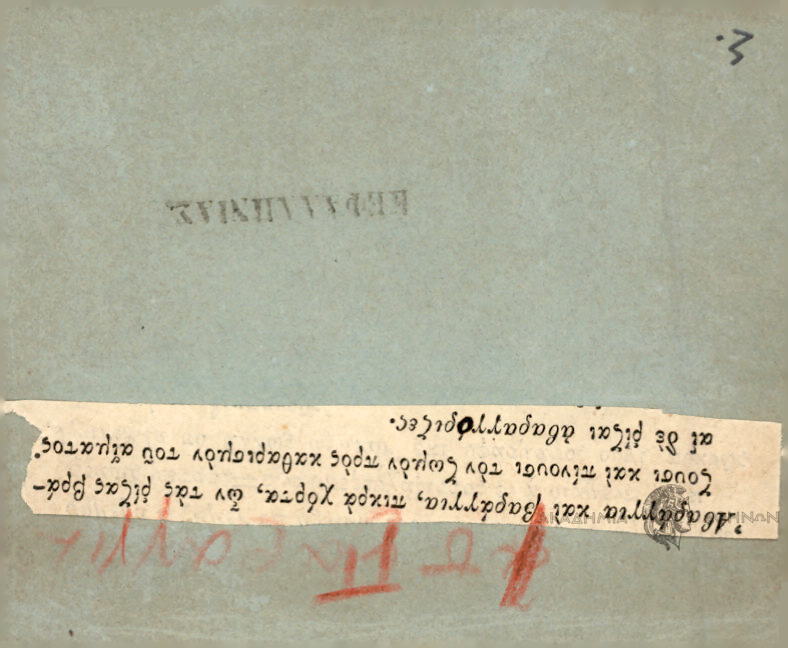 Ἀβαράγγια καὶ βαράγγια, πικρὰ χόρτα, ὧν τὰς ῥίζας βρά-
ζουσι καὶ πίνουσι τὸν ζωμὸν πρὸς καθαρισμὸν τοῦ αἵματος·
αἱ δὲ ῥίζαι ἀβαραγγόριζες.
ΚΕΦΑΛΛΗΝΙΑΣ
ΑΚΑΔΗΜΙΑ ΑΘΗΝΩΝ